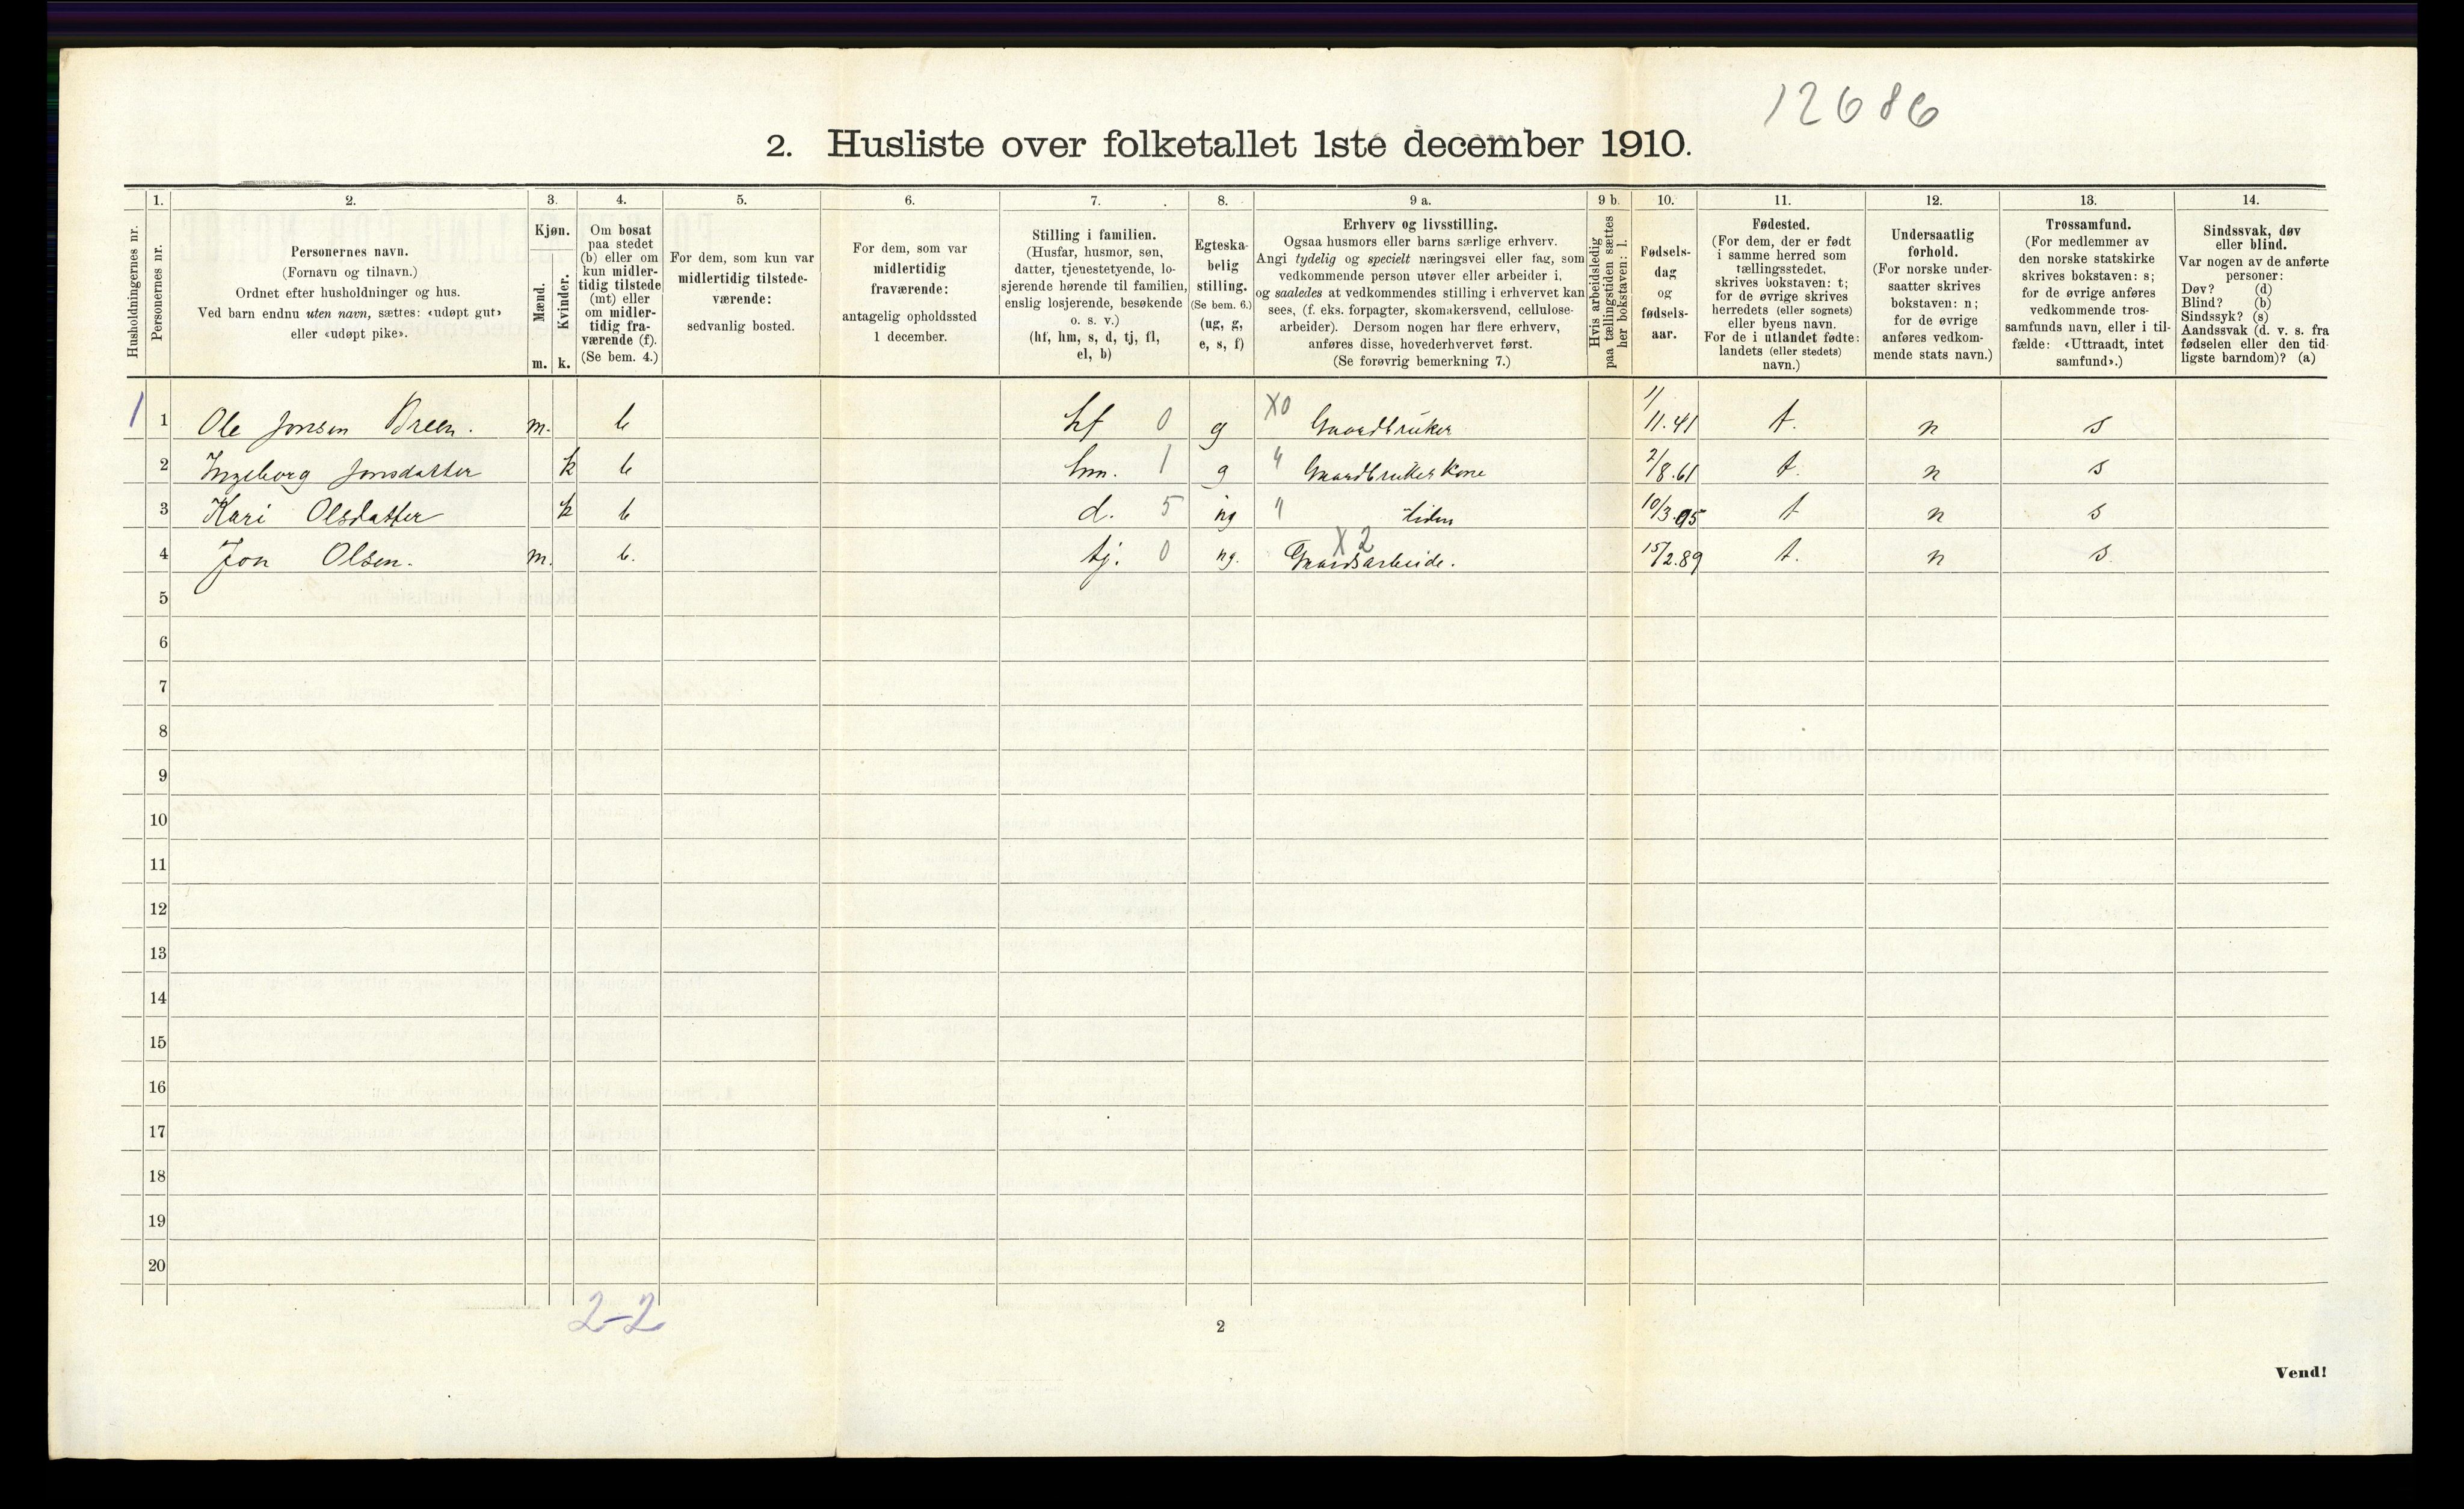 12686
2. Husliste over folketallet 1ste december 1910.
Husholdningernes nr.
1. Personernes nr.
2. Personernes navn.
(Fornavn og tilnavn.)
Ordnet efter husholdninger og hus.
Ved barn endnu uten navn, sættes: «udøpt gut»
eller «udøpt pike».
3. Kjøn.
Mænd. m.
Kvinder. k.
4. Om bosat
paa stedet
(b) eller om
kun midler-
tidig tilstede
(mt) eller
om midler-
tidig fra-
værende (f).
(Se bem. 4.)
5. For dem, som kun var
midlertidig tilstede-
værende:
sedvanlig bosted.
6. For dem, som var
midlertidig
fraværende:
antagelig opholdssted
1 december.
7. Stilling i familien.
(Husfar, husmor, søn,
datter, tjenestetyende, lo-
sjerende hørende til familien,
enslig losjerende, besøkende
o. s. v.)
(hf, hm, s, d, tj, fl,
el, b)
8. Egteska-
belig
stilling.
(Se bem. 6.)
(ug, g,
e, s, f)
9 a. Erhverv og livsstilling.
Ogsaa husmors eller barns særlige erhverv.
Angi tydelig og specielt næringsvei eller fag, som
vedkommende person utøver eller arbeider i,
og saaledes at vedkommendes stilling i erhvervet kan
sees, (f. eks. forpagter, skomakersvend, cellulose-
arbeider). Dersom nogen har flere erhverv,
anføres disse, hovederhvervet først.
(Se forøvrig bemerkning 7.)
9 b. Hvis arbeidsledig
paa tællingstiden sættes
her bokstaven: l.
10. Fødsels-
dag
og
fødsels-
aar.
11. Fødested.
(For dem, der er født
i samme herred som
tællingsstedet,
skrives bokstaven: t;
for de øvrige skrives
herredets (eller sognets)
eller byens navn.
For de i utlandet fødte:
landets (eller stedets)
navn.)
12. Undersaatlig
forhold.
(For norske under-
saatter skrives
bokstaven: n;
for de øvrige
anføres vedkom-
mende stats navn.)
13. Trossamfund.
(For medlemmer av
den norske statskirke
skrives bokstaven: s;
for de øvrige anføres
vedkommende tros-
samfunds navn, eller i til-
fælde: «Uttraadt, intet
samfund».)
14. Sindssvak, døv
eller blind.
Var nogen av de anførte
personer:
Døv? (d)
Blind? (b)
Sindssyk? (s)
Aandssvak (d. v. s. fra
fødselen eller den tid-
ligste barndom)? (a)
1 1 Ole Jonsen Breen. m. b hf 0 g X0 Gaardbruker 1/11.41 t. n s
2 Ingeborg Jonsdatter k b hm. 1 g " Gaardbrukerkone 2/8.61 t. n s
3 Kari Olsdatter k b d. 5 ug " 10/3.95 t n s
4 Jon Olsen. m. b. tj. 0 ug. X2 Gaardsarbeide. 15/2.89 t. n s.
5
6
7
8
9
10
11
12
13
14
15
16
17
18
19
20
2-2
2
Vend!